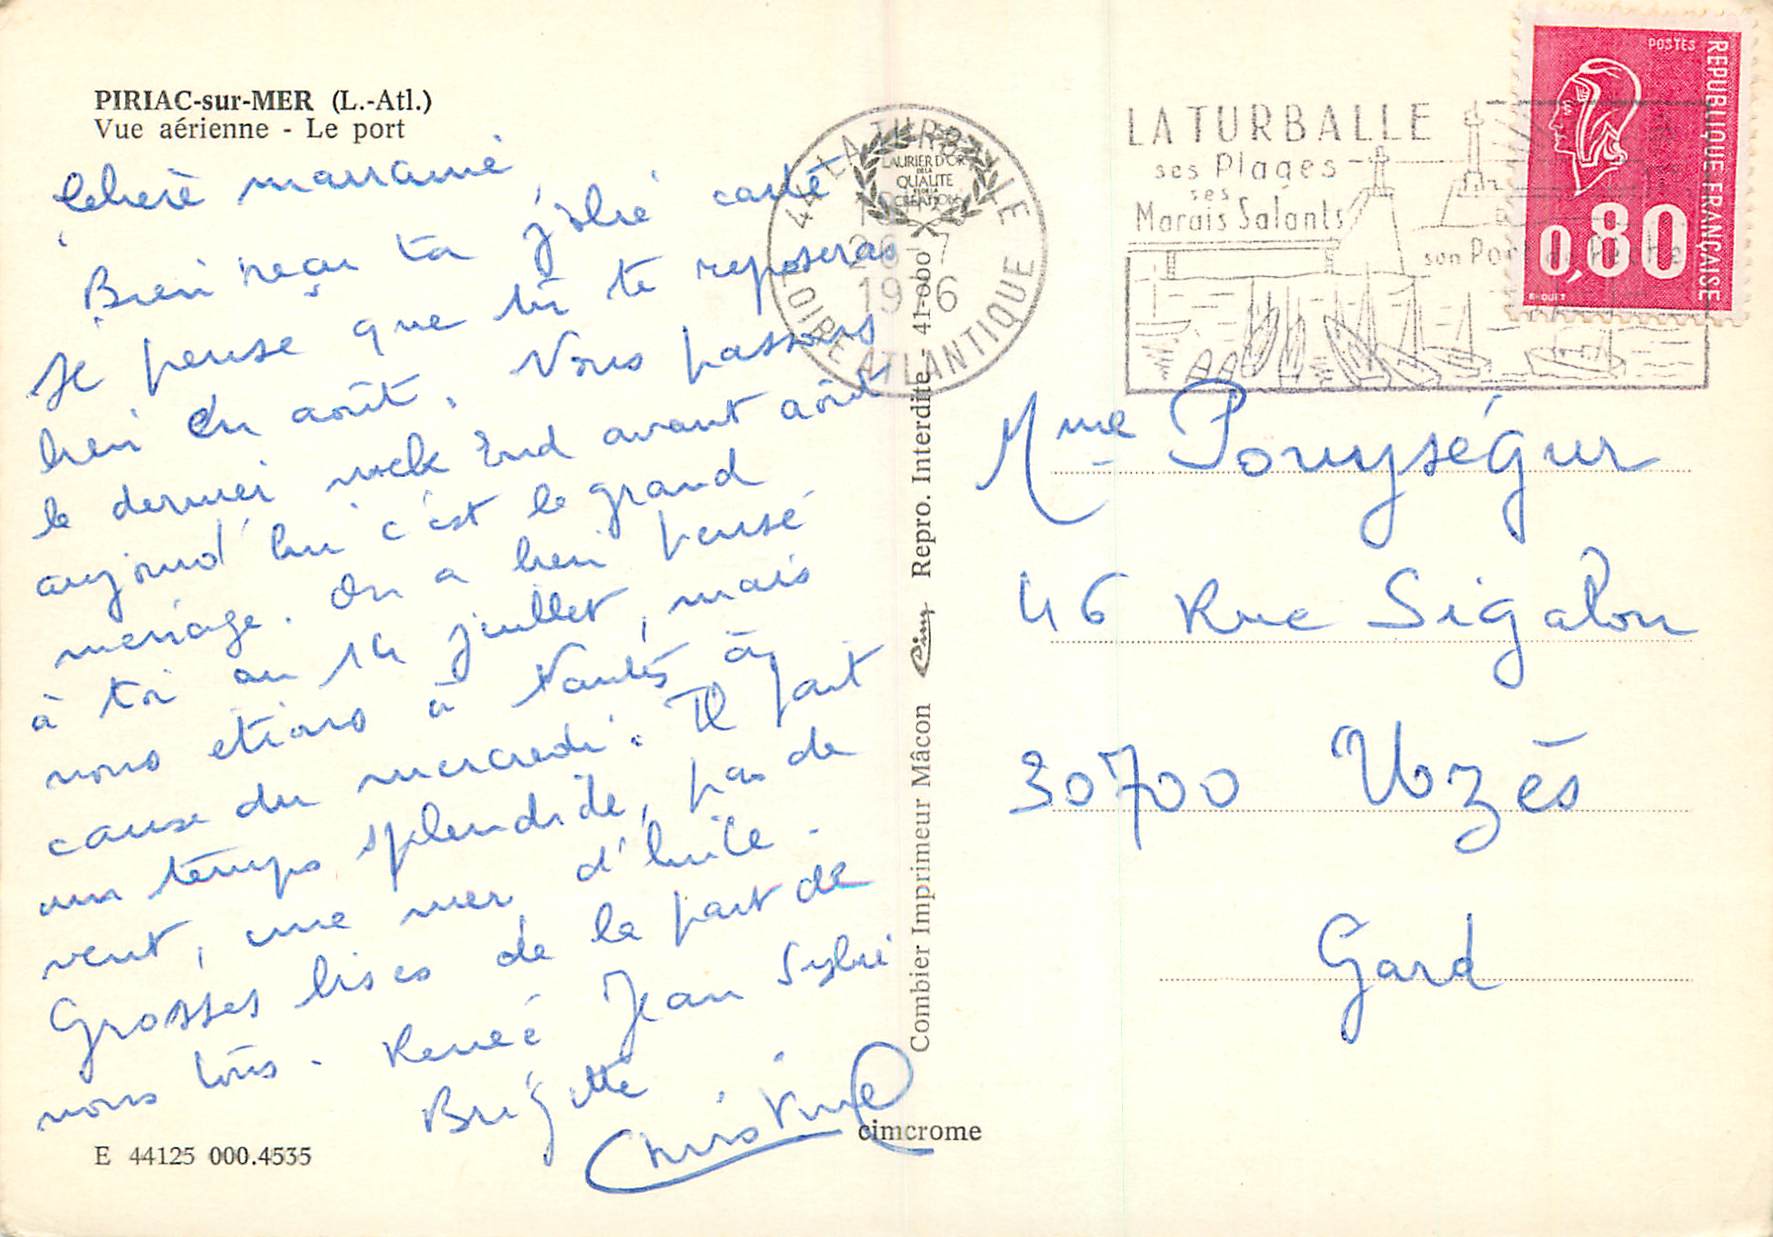 PIRIAC-sur-MER (L.-Atl.)
Vue aérienne - Le port
Chère marraine,
Bien reçu ta jolie carte
Je pense que tu te reposeras
bien en août. Nous passons
le dernier week end avant août
aujourd'hui c'est le grand
ménage. On a bien pensé
à toi au 14 juillet, mais
nous étions à Nantes à
cause du mercredi. Il fait
un temps splendide, pas de
vent, une mer d'huile.
Grosses bises de la part de
nous tous. Renée Jean Sylvie
Brigitte
Christine
E 44125 000.4535
cimcrome
Combier Imprimeur Mâcon Cim Repro. Interdite 41-000
LAURIER D'OR
DE LA
QUALITÉ
ET DE LA
CRÉATION
44 LA TURBALLE
26-7
1976
LOIRE ATLANTIQUE
LA TURBALLE
ses Plages
ses
Marais Salants
son Port de Pêche
POSTES
REPUBLIQUE FRANÇAISE
0,80
Mme Pouységur
46 Rue Sigalon
30700 Uzès
Gard